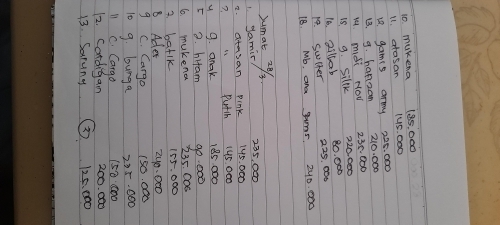 10. mukena 185.000
11. atasan 145.000
12. gamis army 225.000
13. g. harizam 210.000
14. midi Nov 235.000
15. g. Silk 220.000
16. Jilbab 80.000
17. Switer 225.000
18. Mb. ana 240.000
Jumat 28/3.
1. gamis 235.000
2. atasan pink 145.000
3. " putih 145.000
4. g anak 185.000
5. 2 hitam 90.000
6. mukena 235.000
7. batik 155.000
8. Adek 240.000
9. C. Cargo 150.000
10. g burga 235.000
11. C. Cargo 150.000
12. Cardigan 200.000
13. Sarung 125.000